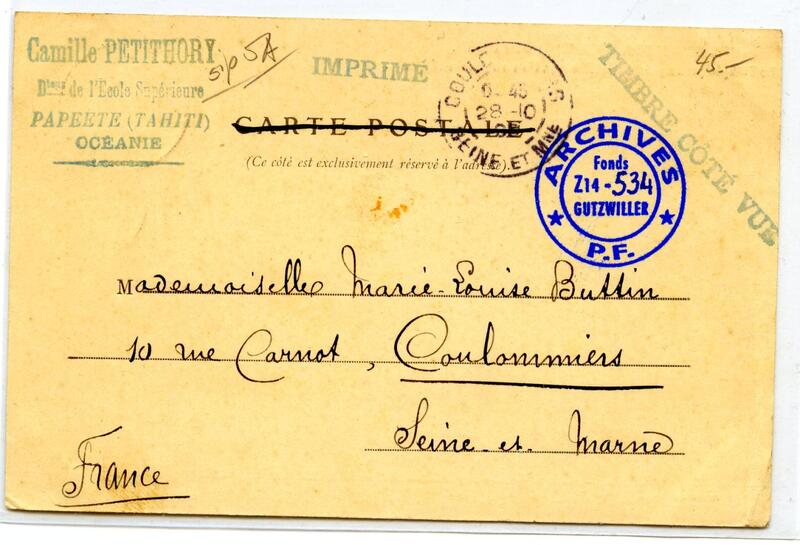 Camille PETITHORY
Dteur de l'École Supérieure
PAPEETE (TAHITI)
OCÉANIE
IMPRIMÉ
45.-
TIMBRE CÔTÉ VUE
28-10
SEINE-ET-MNE
CARTE POSTALE
(Ce côté est exclusivement réservé à l'adresse).
ARCHIVES
Fonds
Z14-534
GUTZWILLER
P.F.
Mademoiselle Marie-Louise Buttin
10 rue Carnot, Coulommiers
Seine-et-Marne
France